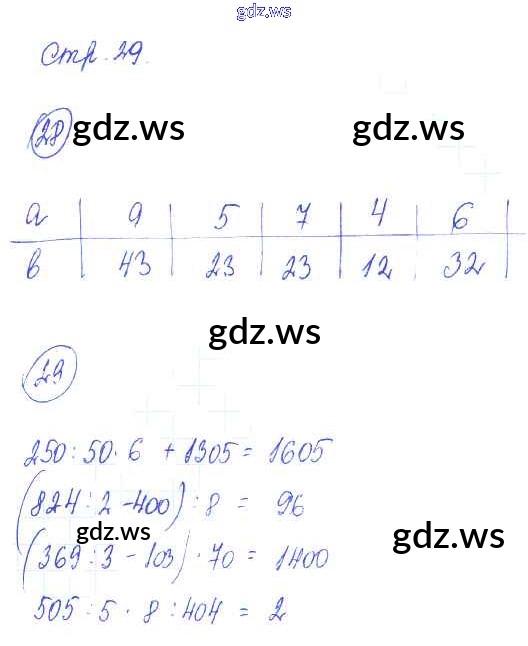 gdz.ws
Стр. 29.
28 gdz.ws gdz.ws
a | 9 | 5 | 7 | 4 | 6 |
в | 43 | 23 | 23 | 12 | 32
gdz.ws
29
250 : 50 · 6 + 1305 = 1605
(824 : 2 - 400) : 8 = 96
gdz.ws gdz.ws
(369 : 3 - 103) · 70 = 1400
505 : 5 · 8 : 404 = 2